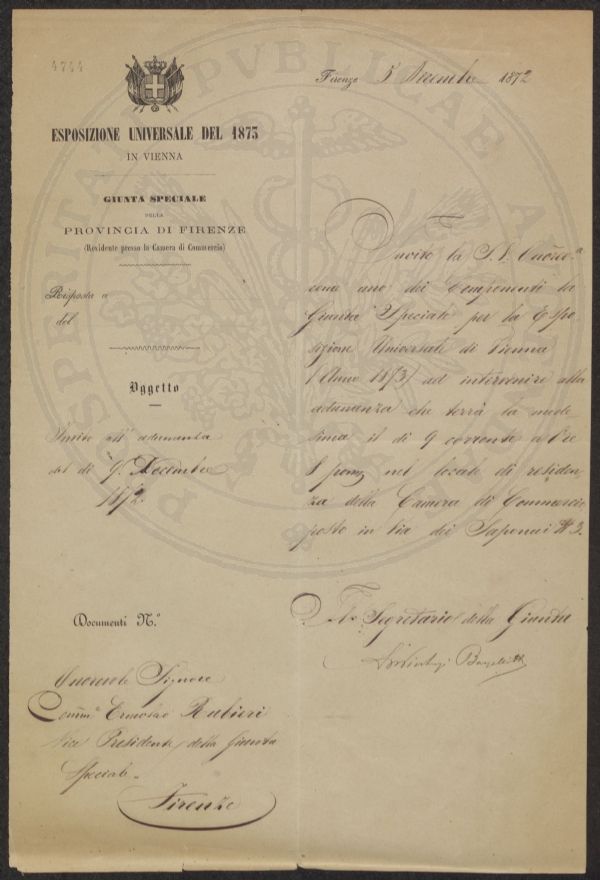 4744
Firenze 5 Decembre 1872
ESPOSIZIONE UNIVERSALE DEL 1873
IN VIENNA
GIUNTA SPECIALE
DELLA
PROVINCIA DI FIRENZE
(Residente presso la Camera di Commercio)
Risposta a
del
Oggetto
Invito all' adunanza
del dì 9. Decembre
1872.
Invito la S. V. Onore.
come uno dei Componenti la
Giunta Speciale per la Espo
sizione Universale di Vienna
(Anno 1873) ad intervenire alla
adunanza che terrà la mede
sima il dì 9 corrente a Ore
nel locale di residen
za della Camera di Commercio
posto in Via dei Saponai N 3.
Il Segretario della Giunta
Documenti N.º
Onorevole Signore
Comm. Ermolao Rubieri
Vice Presidente della Giunta
Speciale
Firenze
PROSPERITATI PVBLICAE